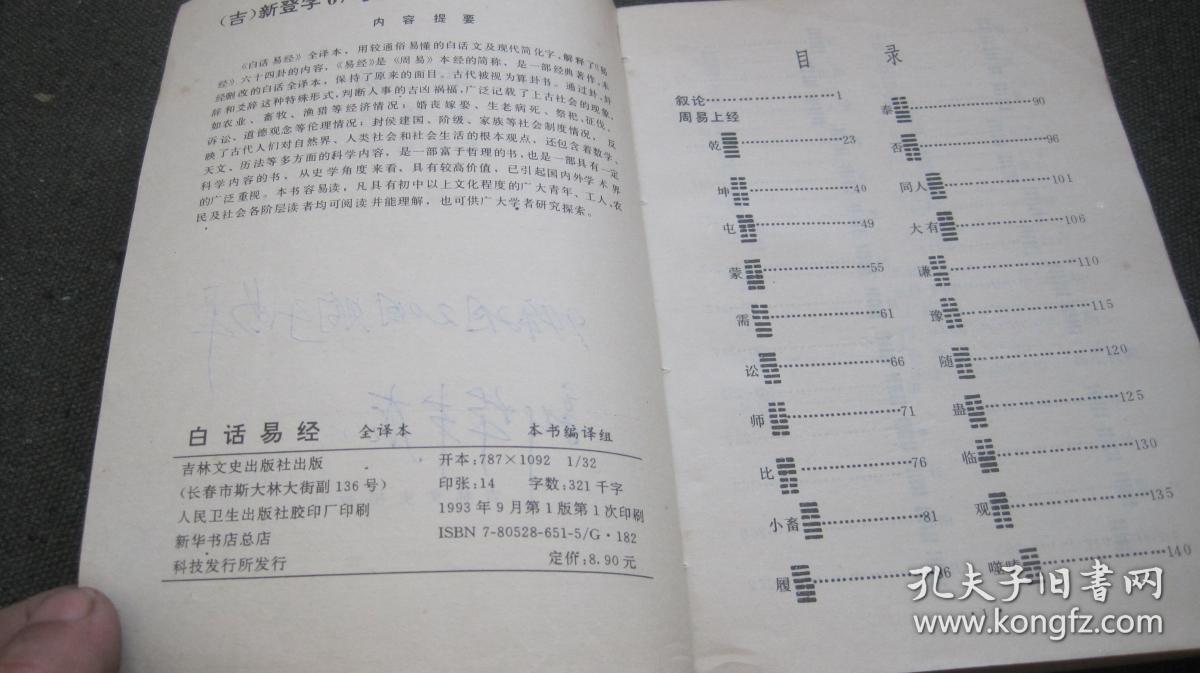 (吉)新登字07
内容提要
《白话易经》全译本，用较通俗易懂的白话文及现代简化字，解释了《易
经》六十四卦的内容，《易经》是《周易》本经的简称，是一部经典著作，未
经删改的白话全译本，保持了原来的面目。古代被视为算卦书。通过卦、卦
辞和爻辞这种特殊形式，判断人事的吉凶祸福，广泛记载了上古社会的现象，
如农业、畜牧、渔猎等经济情况；婚丧嫁娶、生老病死、祭祀、征伐、
诉讼、道德观念等伦理情况；封侯建国、阶级、家族等社会制度情况，反
映了古代人们对自然界、人类社会和社会生活的根本观点，还包含着数学、
天文、历法等多方面的科学内容，是一部富于哲理的书，也是一部具有一定
科学内容的书，从史学角度来看，具有较高价值，已引起国内外学术界
的广泛重视。本书容易读，凡具有初中以上文化程度的广大青年、工人、农
民及社会各阶层读者均可阅读并能理解，也可供广大学者研究探索。
白话易经 全译本 本书编译组
吉林文史出版社出版
(长春市斯大林大街副136号)
人民卫生出版社胶印厂印刷
新华书店总店
科技发行所发行
开本:787×1092 1/32
印张:14 字数:321千字
1993年9月第1版第1次印刷
ISBN 7-80528-651-5/G·182
定价:8.90元
目录
叙论……………1
周易上经
乾……………23
坤……………40
屯……………49
蒙……………55
需……………61
讼……………66
师……………71
比……………76
小畜……………81
履……………86
泰……………90
否……………96
同人……………101
大有……………106
谦……………110
豫……………115
随……………120
蛊……………125
临……………130
观……………135
噬嗑……………140
·1
孔夫子旧书网
www.kongfz.com